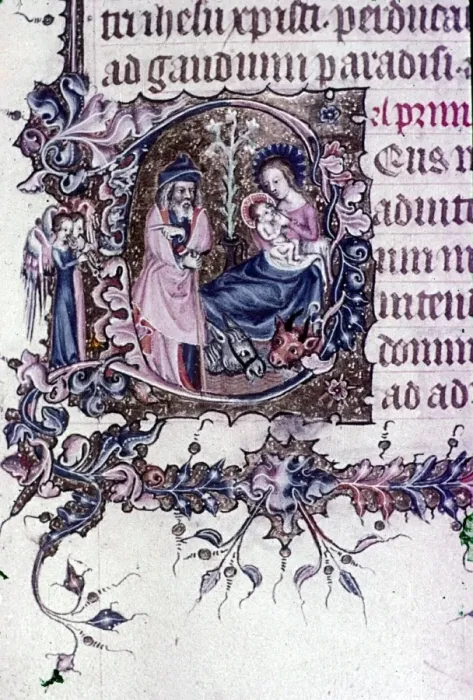 tri ihesu xpisti. perduca
ad gaudium paradisi.
prim
Eus i
adiut
um m
inten
domin
ad ad